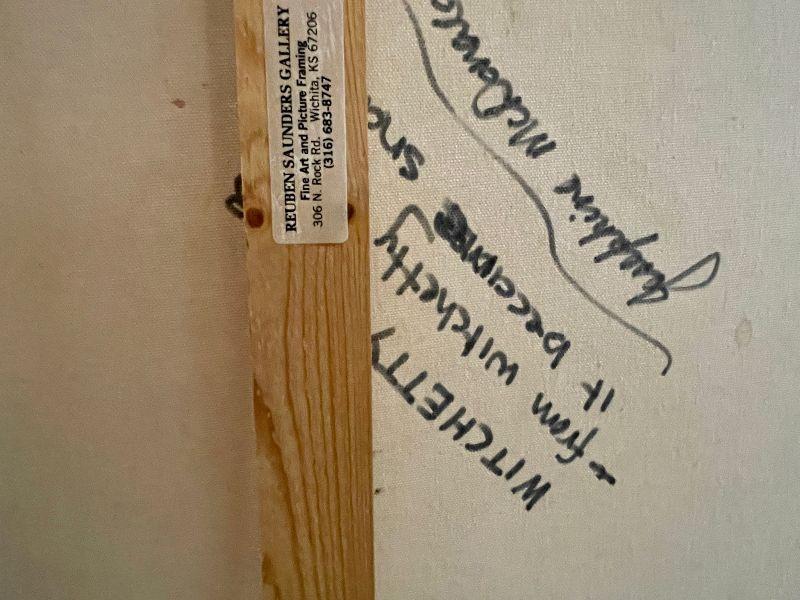 REUBEN SAUNDERS GALLERY
Fine Art and Picture Framing
306 N. Rock Rd. Wichita, KS 67206
(316) 683-8747
WITCHETTY
- from witchetty
it becomes sna
Josephine McDonald